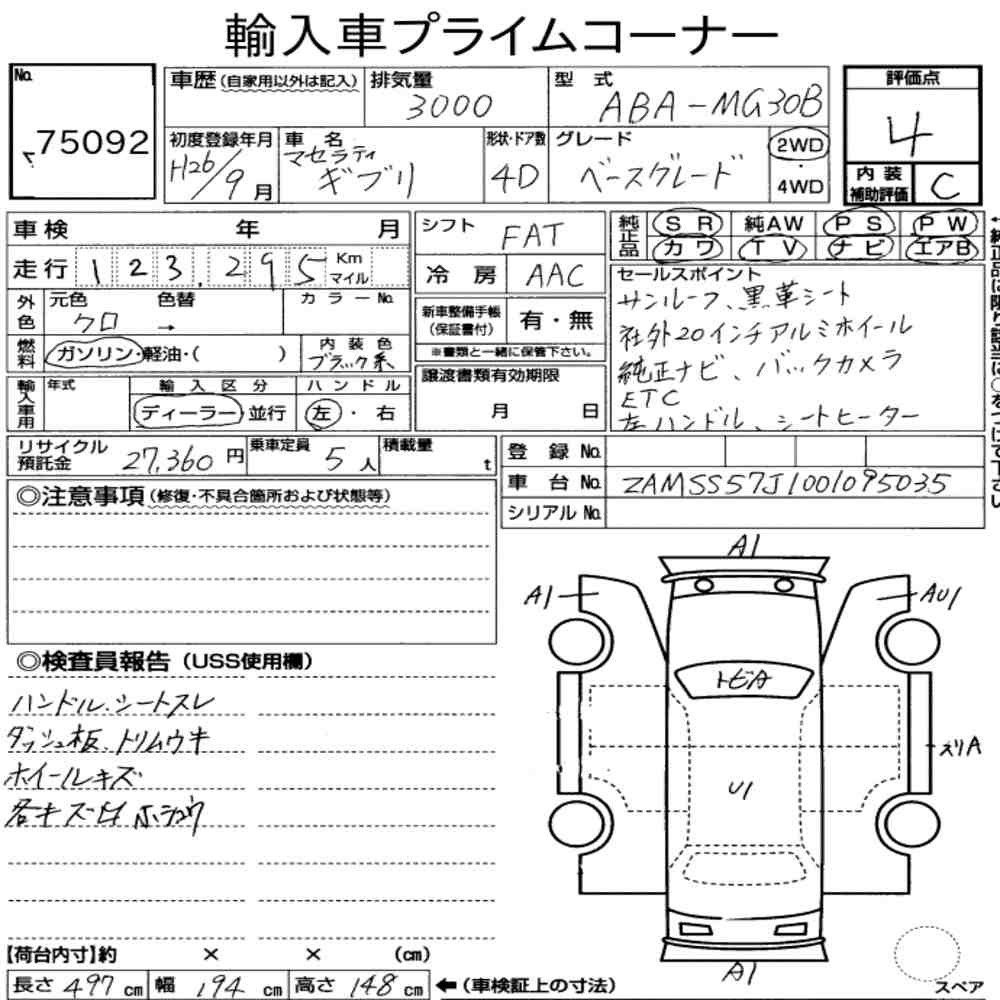 輸入車プライムコーナー
No. 75092
車歴 (自家用以外は記入)
排気量 3000
型式 ABA-MG30B
評価点 4
初度登録年月 H26/9月
車名 マセラティ ギブリ
形状・ドア数 4D
グレード ベースグレード
2WD ・ 4WD
内装補助評価 C
車検 年 月
走行 123,295 Km マイル
シフト FAT
冷房 AAC
純正品 SR 純AW PS PW
カワ TV ナビ エアB
外色 元色 クロ 色替 → カラーNo.
燃料 ガソリン・軽油・( )
内装色 ブラック系
新車整備手帳 (保証書付) 有・無
※書類と一緒に保管下さい。
セールスポイント
サンルーフ、黒革シート
社外20インチアルミホイール
純正ナビ、バックカメラ
ETC
左ハンドル、シートヒーター
輸入車用 年式 輸入区分 ディーラー 並行
ハンドル 左・右
譲渡書類有効期限 月 日
リサイクル預託金 27,360円
乗車定員 5人
積載量 t
登録No.
車台No. ZAMSS57J1001095035
シリアルNo.
◎注意事項 (修復・不具合箇所および状態等)
◎検査員報告 (USS使用欄)
ハンドル、シートスレ
ダッシュ板、トリムウキ
ホイールキズ
各キズ凹ホシュウ
A1
A1
AU1
トビA
ズリA
U1
A1
スペア
【荷台内寸】約 × × (cm)
長さ 497 cm 幅 194 cm 高さ 148 cm ←(車検証上の寸法)